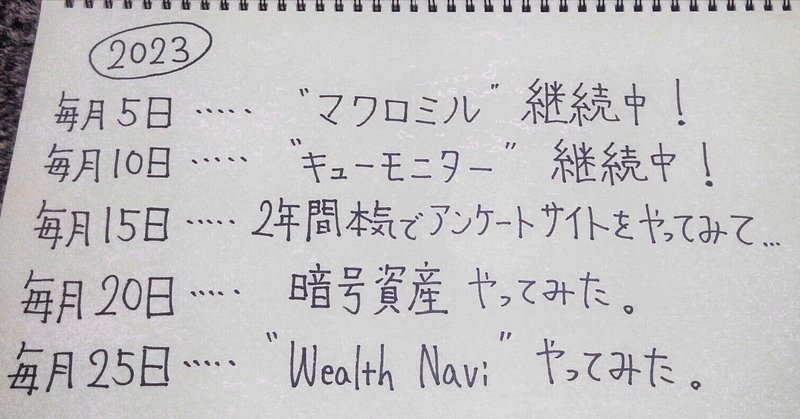 2023
毎月5日 ‥‥‥ "マクロミル" 継続中！
毎月10日 ‥‥‥ "キューモニター" 継続中！
毎月15日 ‥‥‥ 2年間本気でアンケートサイトをやってみて…
毎月20日 ‥‥‥ 暗号資産 やってみた。
毎月25日 ‥‥‥ "Wealth Navi" やってみた。